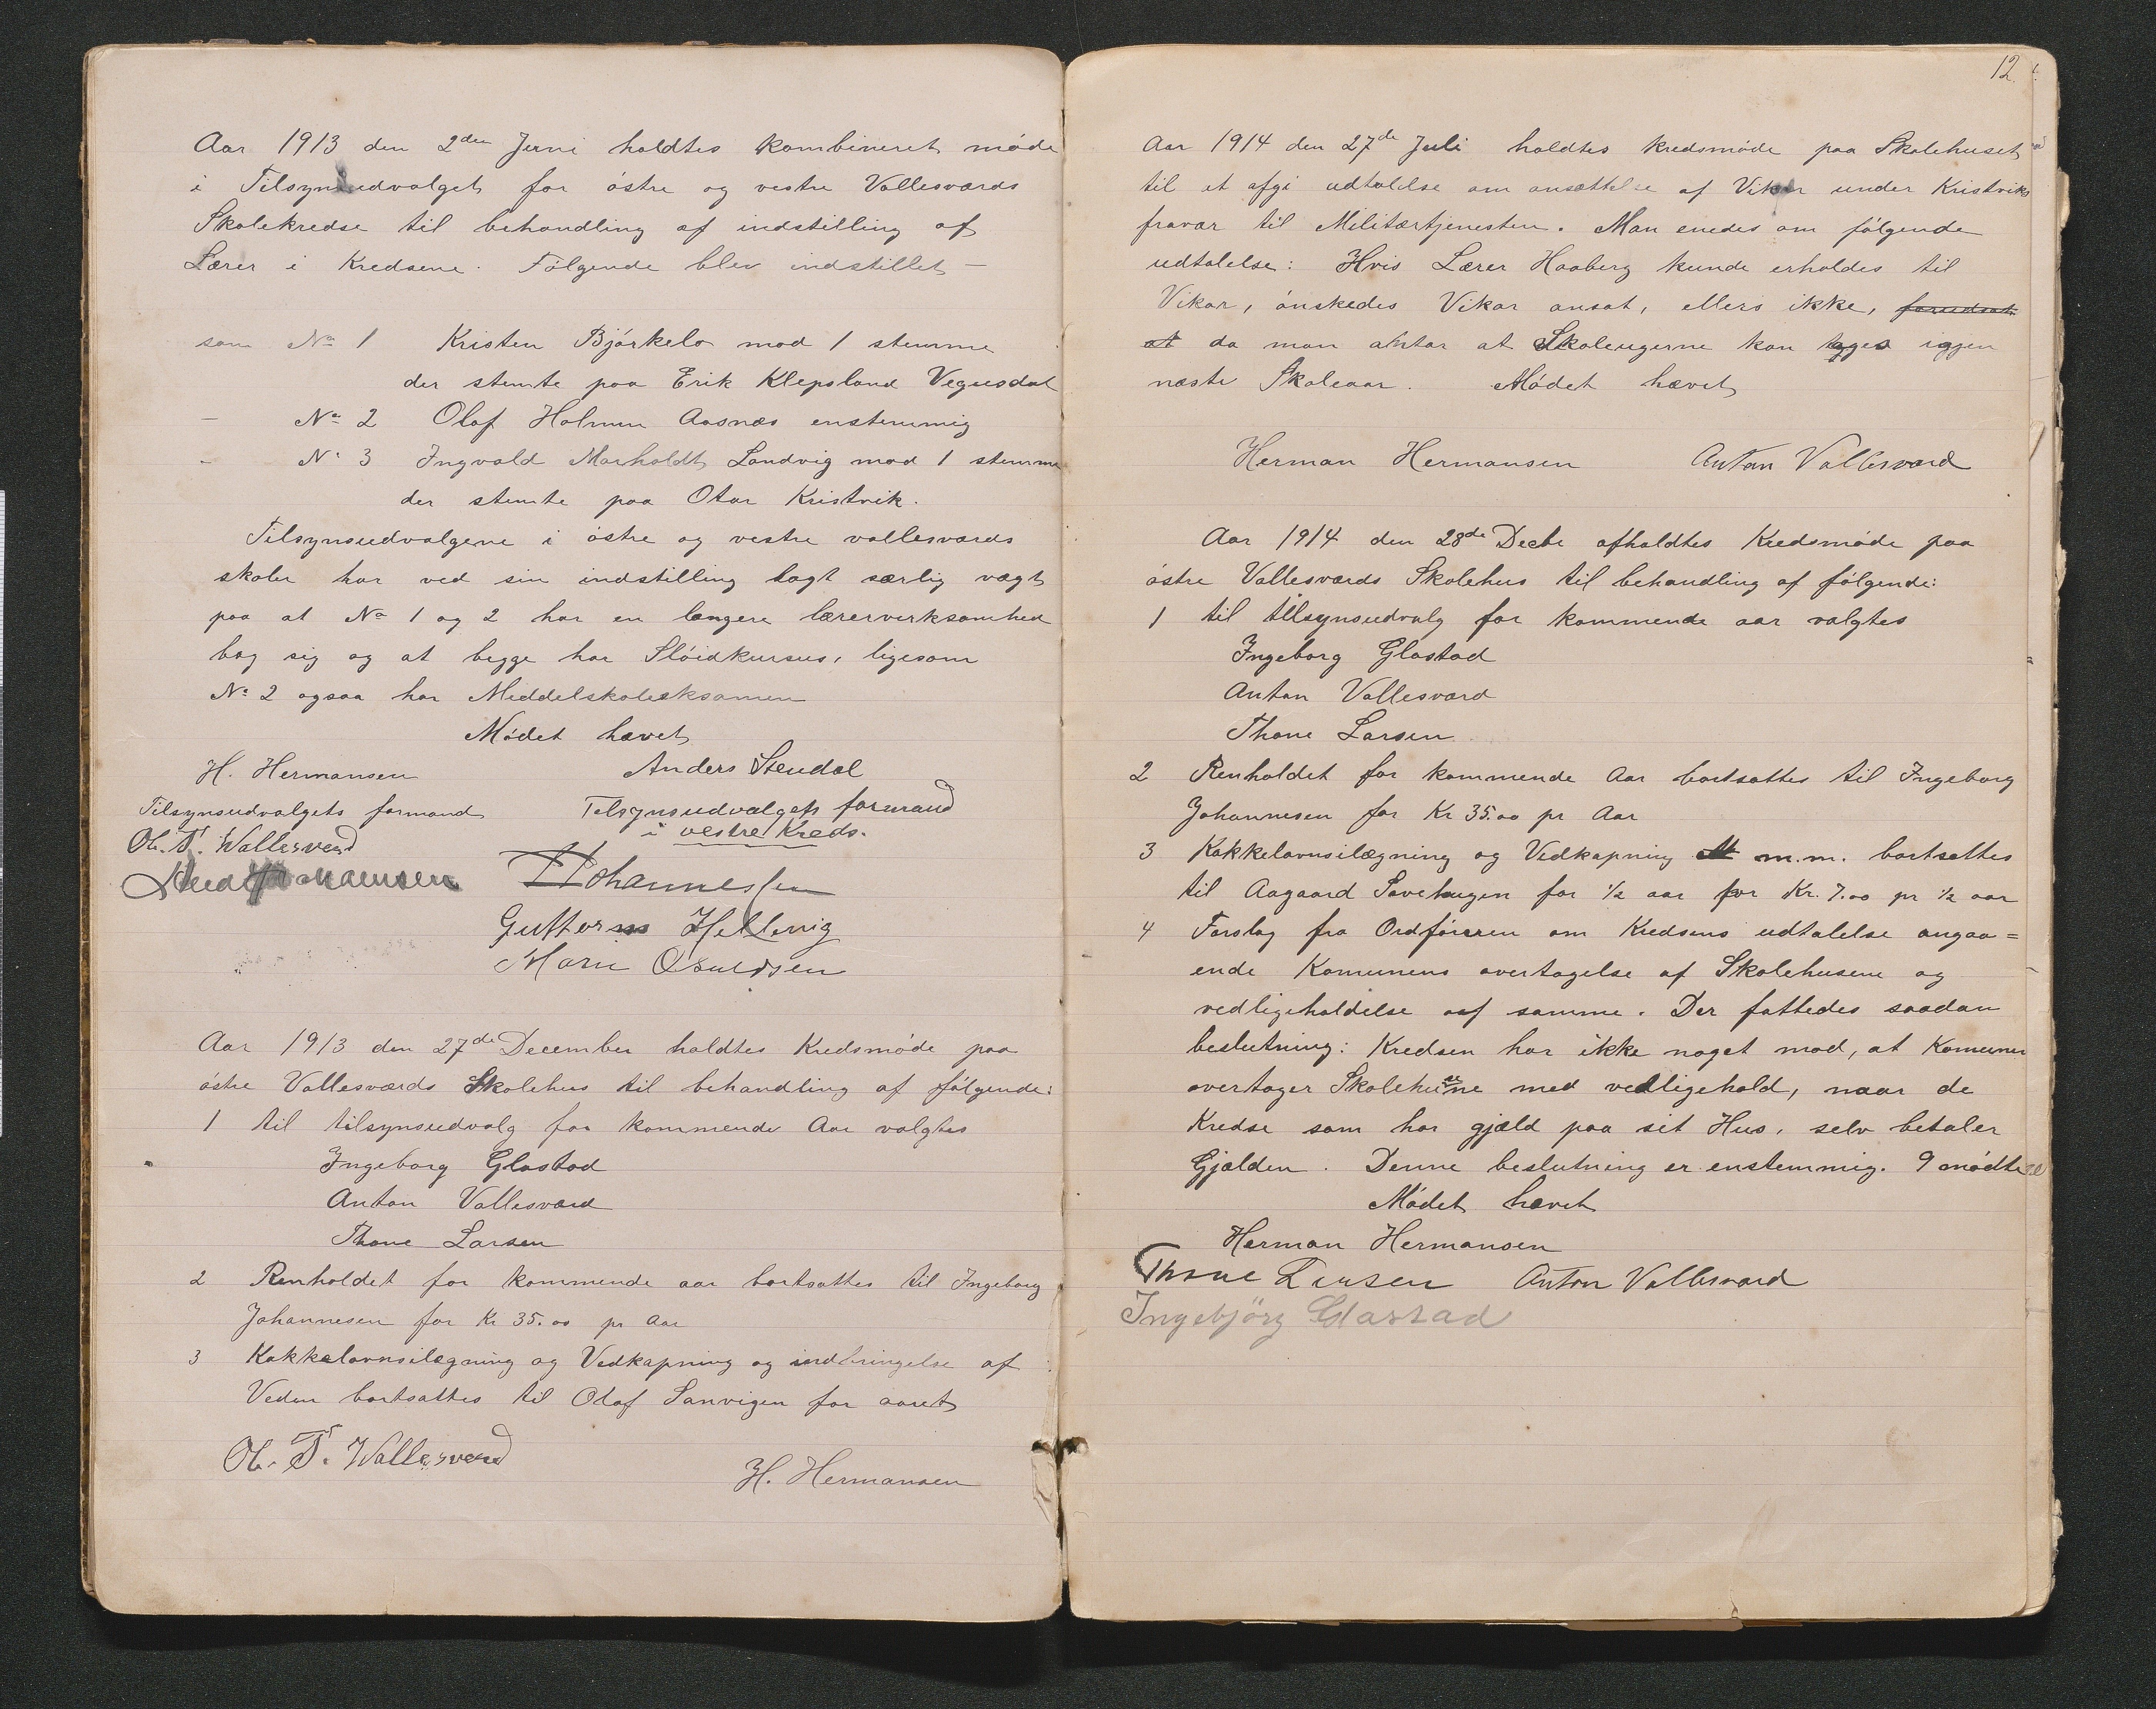 Aar 1913 den 2den Juni holdtes kombineret møde
i Tilsynsudvalget for østre og vestre Vallesværds
Skolekredse til behandling af indstilling af
Lærer i Kredsene. Følgende blev indstillet –
som No 1 Kristen Bjørkelo mod 1 stemme
der stemte paa Erik Klepsland Vegusdal
– No 2 Olaf Holmen Aasnæs enstemmig
– No 3 Ingvald Marholdt Landvig mod 1 stemme
der stemte paa Otar Kristvik.
Tilsynsudvalgene i østre og vestre vallesværds
skoler har ved sin indstilling lagt særlig vægt
paa at No 1 og 2 har en længere lærervirksomhed
bag sig og at begge har Sløidkursus, ligesom
No 2 ogsaa har Meddelskoleeksamen
Mødet hævet
H. Hermansen Anders Stendal
Tilsynsudvalgets formand Telsynsudvalgets formand
i vestre Kreds.
Ol. T. Wallesverd
Johannessen
Hellevig
Marn Osuldsen
Aar 1913 den 27de December holdtes Kredsmøde paa
østre Vallesværds Skolehus til behandling af følgende:
1 til tilsynsudvalg for kommende Aar valgtes
Ingeborg Glastad
Anton Vallesværd
Thone Larsen
2 Renholdet for kommende aar bortsattes til Ingeborg
Johannesen for Kr 35.00 pr Aar
3 Kakkelovnsilægning og Vedkapning og indbringelse af
Veden bortsattes til Olaf Sanvigen for aaret
Ol. T. Wallesverd
H. Hermansen
12.
Aar 1914 den 27de Juli holdtes kredsmøde paa Skolehuset
til at afgi udtalelse om ansættelse af Vikar under Kristviks
fravær til Militærtjenesten. Man enedes om følgende
udtalelse: Hvis Lærer Haaberg kunde erholdes til
Vikar, ønskedes Vikar ansat, ellers ikke, forudsat
at da man antar at Skoleugerne kan tages igjen
næste Skoleaar. Mødet hævet
Herman Hermansen Anton Vallesværd
Aar 1914 den 28de Decbr afholdtes Kredsmøde paa
østre Vallesværds Skolehus til behandling af følgende:
1 til tilsynsudvalg for kommende aar valgtes
Ingeborg Glastad
Anton Vallesværd
Thone Larsen
2 Renholdet for kommende Aar bortsattes til Ingeborg
Johannesen for Kr 35.00 pr Aar
3 Kakkelovnsilægning og Vedkapning m.m. bortsattes
til Aagaard Savehagen for 1/2 aar for Kr. 7.00 pr 1/2 aar
4 Forslag fra Ordføreren om Kredsens udtalelse angaa=
ende Komunens overtagelse af Skolehusene og
vedligeholdelse af samme. Der fattedes saadan
beslutning: Kredsen har ikke noget mod, at Komunen
overtager Skolehusene med vedligehold, naar de
Kredse som har gjæld paa sit Hus, selv betaler
Gjælden. Denne beslutning er enstemmig. 9 mødte
Mødet hævet
Herman Hermansen
Thone Larsen Anton Vallesværd
Ingebjörg Glastad